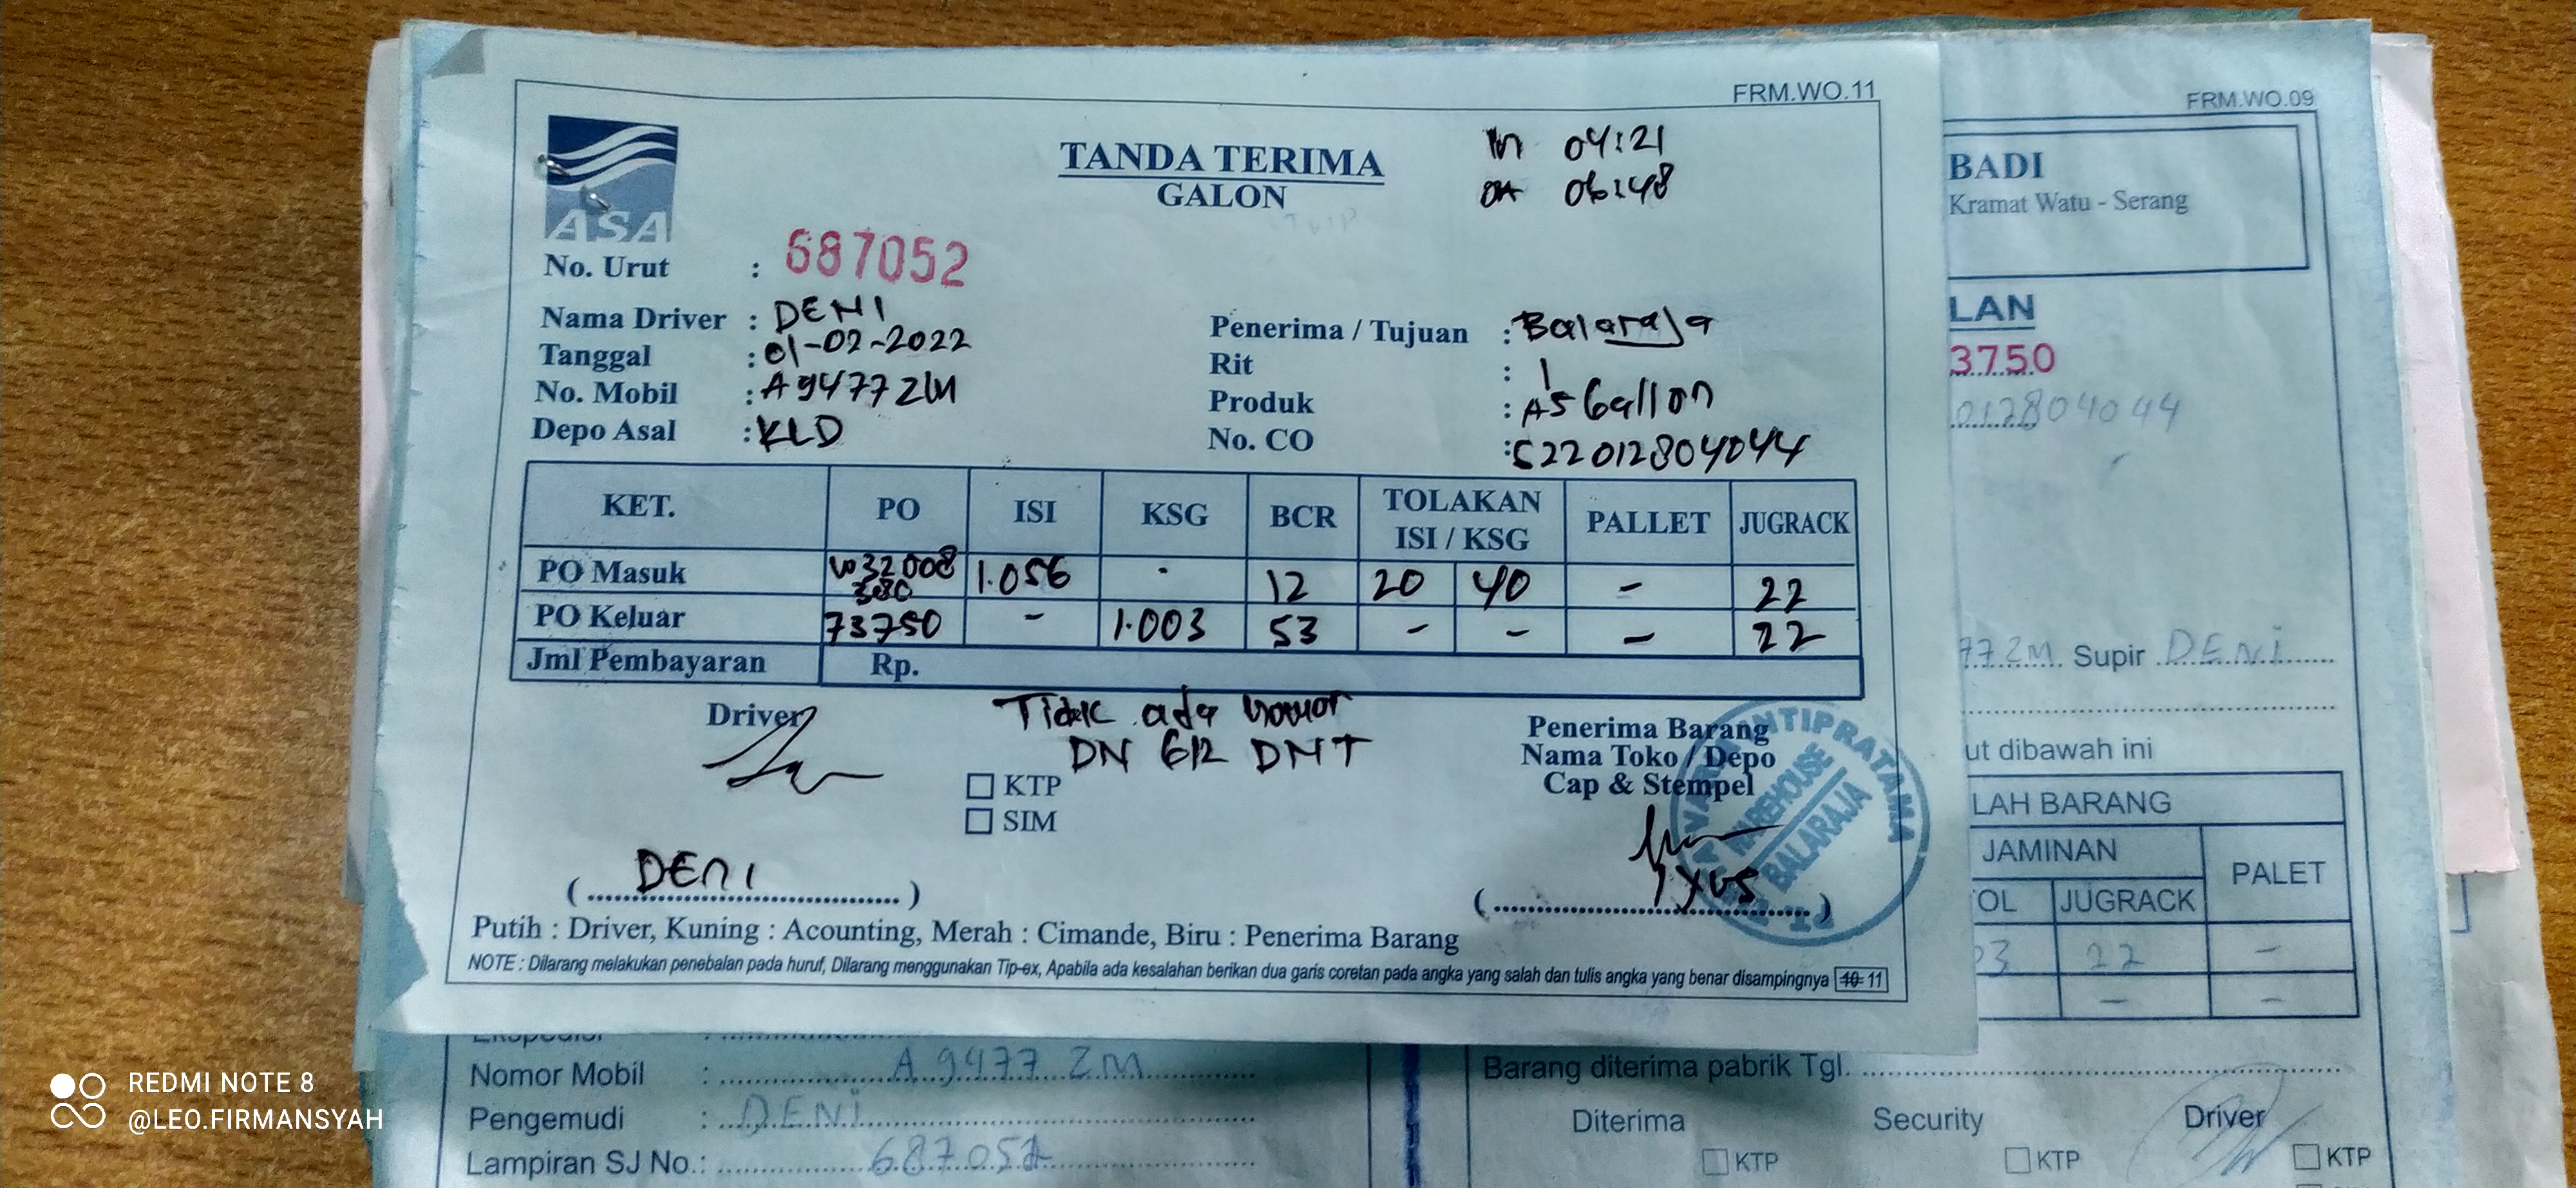 FRM.WO.11
ASA
TANDA TERIMA
GALON
In 04:21
06:48
No. Urut : 687052
Nama Driver : DENI
Tanggal : 01-02-2022
No. Mobil : A 9477 ZM
Depo Asal : KLD
Penerima / Tujuan : Balaraja
Rit : 1
Produk : A5 Gallon
No. CO : 522012804044
KET. PO ISI KSG BCR TOLAKAN ISI / KSG PALLET JUGRACK
PO Masuk 1.056 - 12 20 40 - 22
PO Keluar 73750 - 1.003 53 - - - 22
Jml Pembayaran Rp.
Driver
Tidak ada
DN DMT
KTP
SIM
Penerima Barang
Nama Toko / Depo
Cap & Stempel
WAREHOUSE
BALARAJA
(DENI)
Putih : Driver, Kuning : Acounting, Merah : Cimande, Biru : Penerima Barang
NOTE : Dilarang melakukan penebalan pada huruf, Dilarang menggunakan Tip-ex, Apabila ada kesalahan berikan dua garis coretan pada angka yang salah dan tulis angka yang benar disampingnya 10 11
FRM.WO.09
BADI
Kramat Watu - Serang
LAN
3750
012804044
77 ZM Supir DENI
ut dibawah ini
LAH BARANG
JAMINAN PALET
OL JUGRACK
03 22 -
- -
Nomor Mobil : A 9477 ZM
Pengemudi : DENI
Lampiran SJ No.: 687052
Barang diterima pabrik Tgl.
Diterima Security Driver
KTP KTP KTP
REDMI NOTE 8
@LEO.FIRMANSYAH